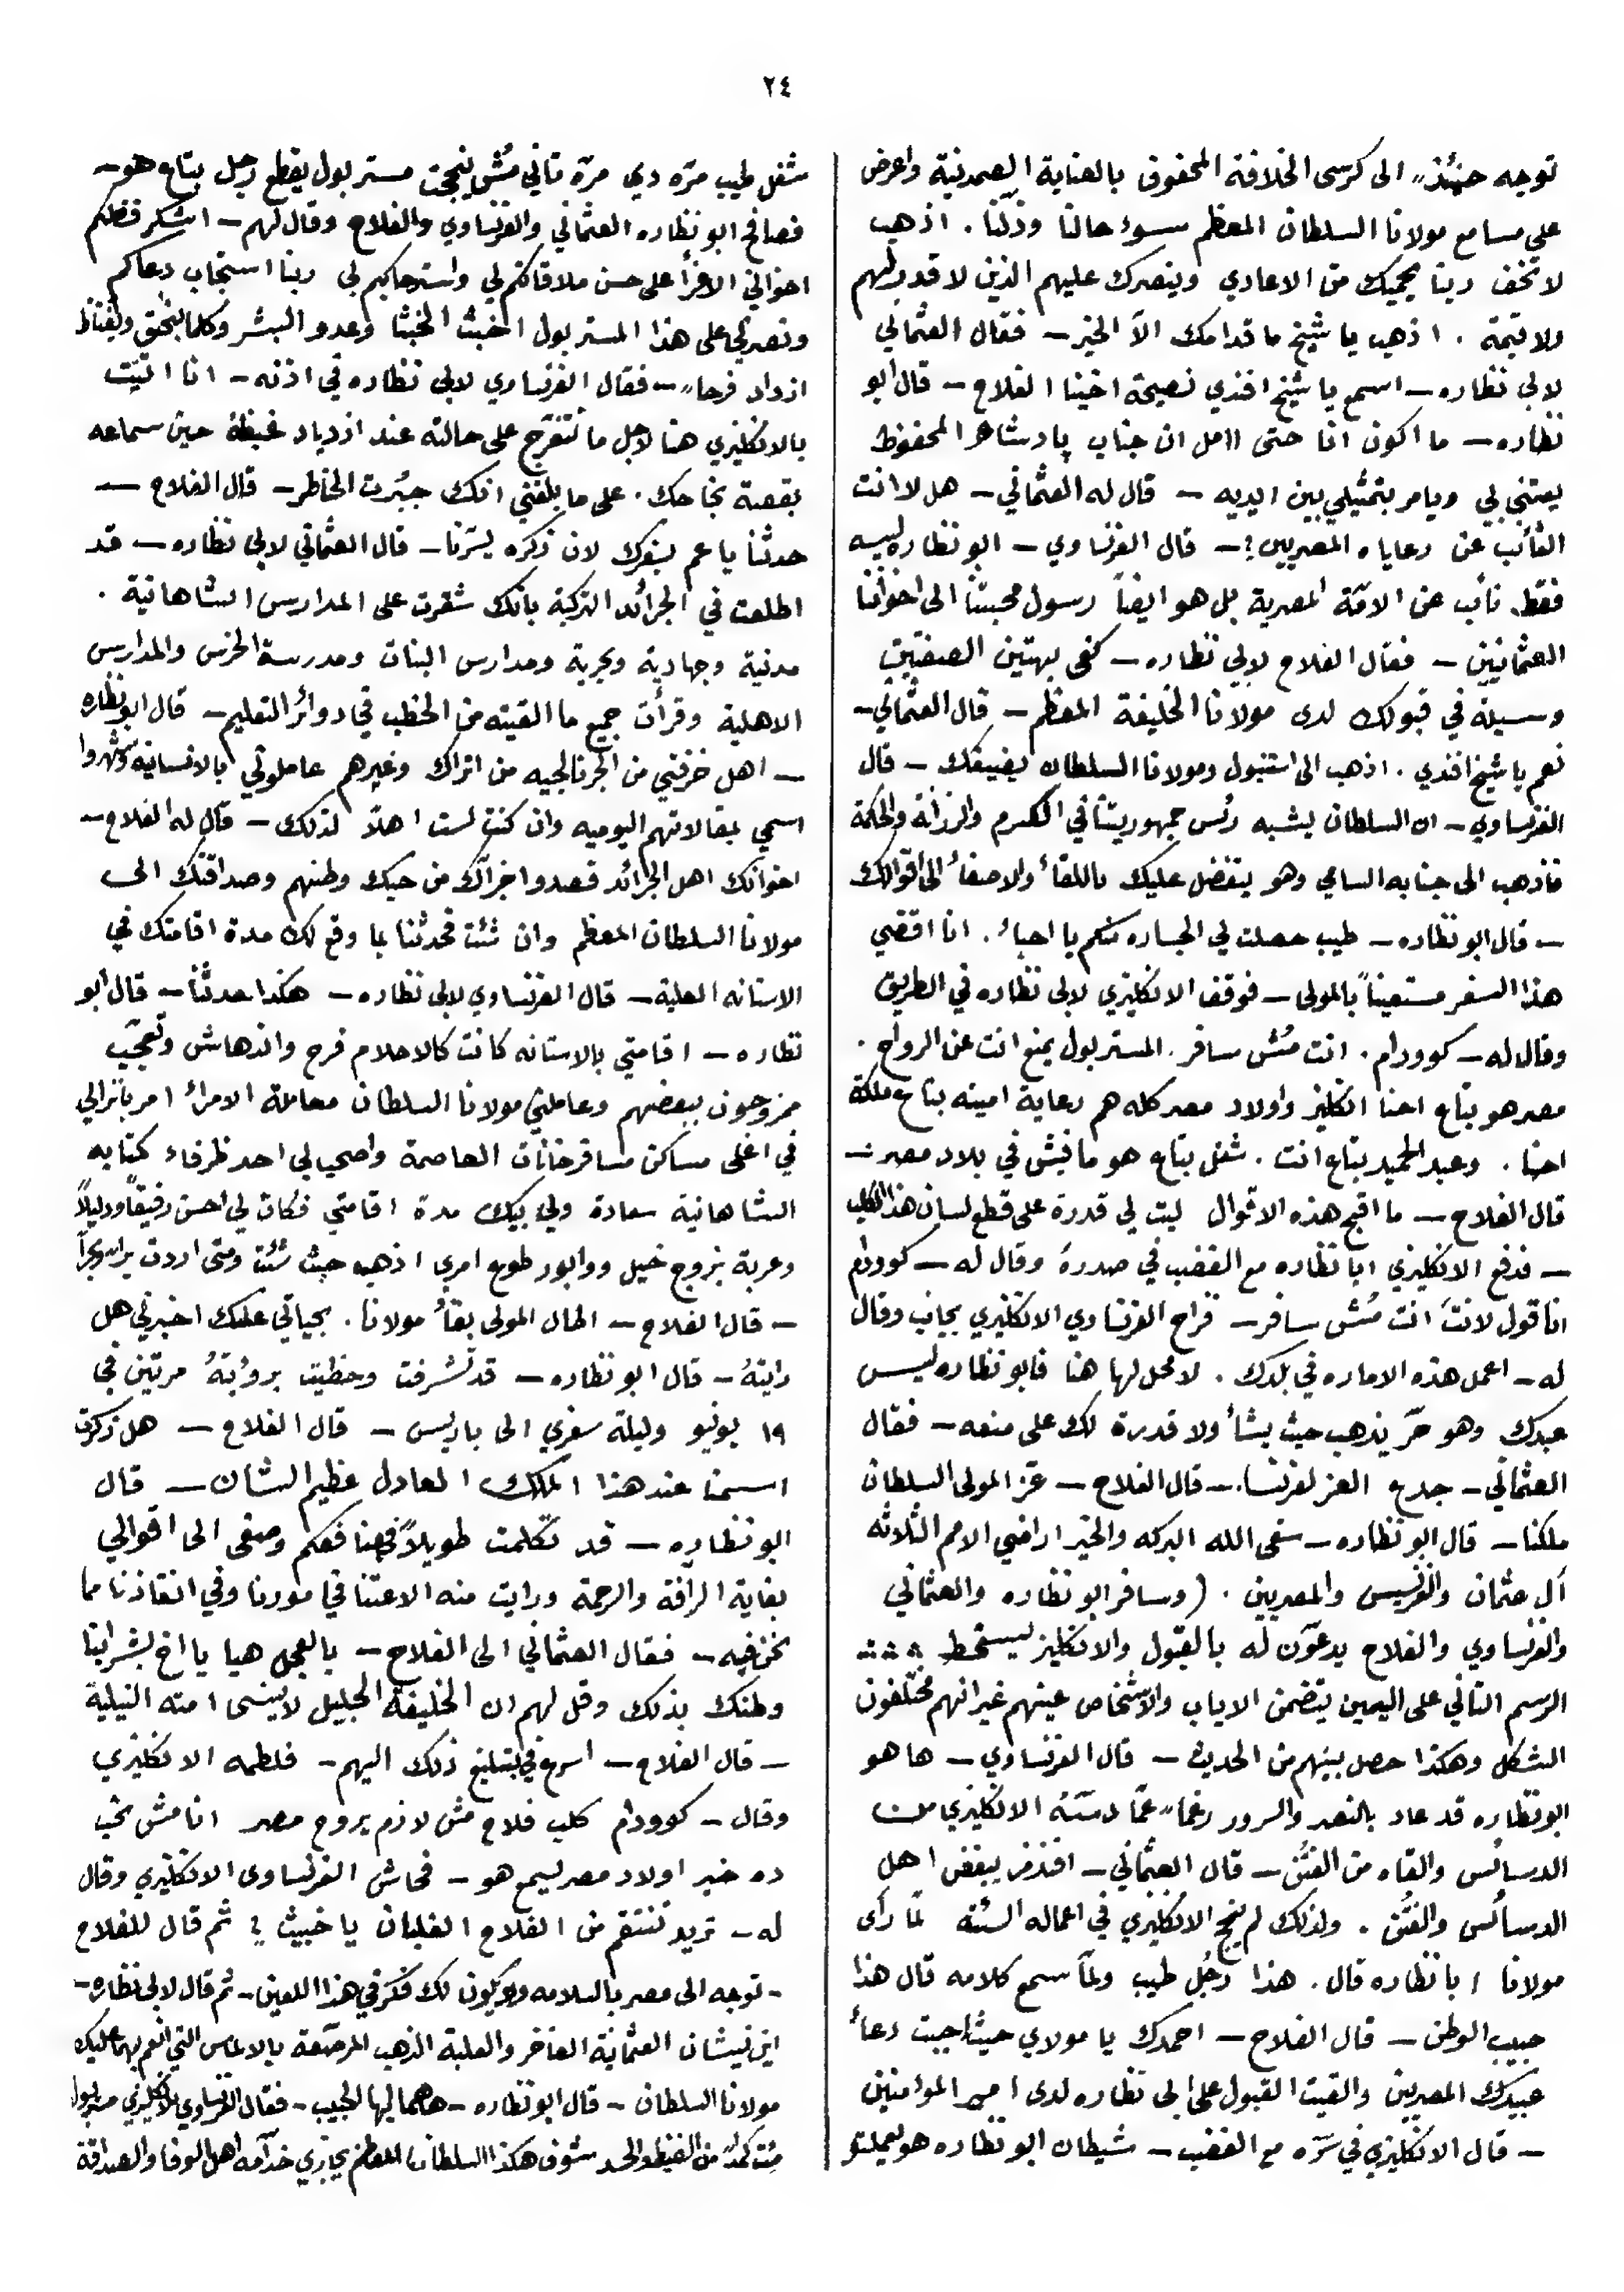 ٢٤
توجه حينئذ الى كرسى الخلافة المحفوق بالعناية الصمدنية واعرض
على مسامع مولانا السلطان المعظم سوء حالنا وذلنا . اذهب
لا تخف ربنا يحميك من الاعادي وينصرك عليهم الذين لا قدر لهم
ولا قيمة . اذهب يا شيخ ما قدامك الاّ الخير – فقال العثماني
لابي نظاره – اسمع يا شيخ افندي نصيحة اخينا الفلاح – قال ابو
نظاره – ما اكون انا حتى اامل ان جناب پادشاهر المحفوظ
يعتني بي ويامر بتمثيلي بين ايديه – قال له العثماني – هل لا انت
النائب عن رعاياه المصريين ؟ – قال الفرنساوي – ابو نظاره ليس
فقط نائب عن الامّة المصرية بل هو ايضاً رسول محبتنا الى اخواننا
العثمانيين – فقال الفلاح لابي نظاره – كفى بهتين الصفتين
وسيلة في قبولك لدى مولانا الخليفة المعظم – قال العثماني –
نعم يا شيخ افندي . اذهب الى استنبول ومولانا السلطان يضيفك – قال
الفرنساوي – ان السلطان يشبه رئس جمهوريتنا في الكرم والرزانة والحكمة
فاذهب الى جنابه السامي وهو يتفضل عليك باللقاء والاصغاء الى اقوالك
– قال ابو نظاره – طيب حصلت لي الجساره منكم يا احباء . انا اقضي
هذا السفر مستعيناً بالمولى – فوقف الانكليزي لابي نظاره في الطريق
وقال له – كوودام . انت مُش سافر . المستر بول يمنع انت عن الرواح .
مصر هو بتاع احنا انكليز واولاد مصر كله هم رعاية امينه بتاع ملكة
احنا . وعبد الحميد بتاع انت . شغل بتاع هو مافيش في بلاد مصر –
قال الفلاح – ما اقبح هذه الاقوال ليت لي قدرة على قطع لسان هذا الكلب
– فدفع الانكليزي ابا نظاره مع الغضب في صدره وقال له – كوودام
انا قول لانتَ انت مُش سافر – فزاح الفرنساوي الانكليزي بجانب وقال
له – اعمل هذه الاماره في بلدك . لا محل لها هنا فابو نظاره ليس
عبدك وهو حرّ يذهب حيث يشأ ولا قدرة لك على منعه – فقال
العثماني – جدع العز لفرنسا – قال الفلاح – عز المولى السلطان
ملكنا – قال ابو نظاره – سقى الله البركه والخير اراضي الامم الثلاثه
آل عثمان والفرنسيس والمصريين . ( وسافر ابو نظاره والعثماني
والفرنساوي والفلاح يدعون له بالقبول والانكليز ليسخط
الرسم الثاني على اليمين يتضمن الاياب والاشخاص عينهم غير انهم مختلفون
الشكل وهكذا حصل بينهم من الحديث – قال الفرنساوي – ها هو
ابو نظاره قد عاد بالنصر والسرور رغماً عمّا دسّه الانكليزي من
الدسائس والقاه من الفتن – قال العثماني – افندمز يبغض اهل
الدسائس والفتن . ولذلك لم ينجح الانكليزي في اعماله السئه لمّا رأى
مولانا ابا نظاره قال . هذا رجُل طيب ولمّا سمع كلامه قال هذا
حبيب الوطن – قال الفلاح – احمدك يا مولاي حيث اجبت دعاء
عبيدك المصريين والقيت القبول على ابي نظاره لدى امير الموامنين
– قال الانكليزي في سرّه مع الغضب – شيطان ابو نظاره هو يعملتو
شغل طيب مرّه دي مرّة تاني مُش ينجحت مستر بول يقطع رجل بتاع هو –
فصافح ابو نظاره العثماني والفرنساوي والفلاح وقال لهم – اشكر فضلكم
اخواني الاعزأ على حسن ملاقاتكم لي واسترحابكم بي ربنا استجاب دعاكم
ونصرني على هذا المستر بول اخبث الخبثا وعدو البشر وكلما يتخنق ويغتاظ
ازداد فرحاً – فقال الفرنساوي لابي نظاره في اذنه – انا اتيت
بالانكليزي هنا لاجل ما نتفرج على حالته عند ازدياد غيظه حين سماعه
بقصة نجاحك . على ما بلغني انك جبُرت الخاطر – قال الفلاح –
حدثنا يا عم بسفرك لان ذكره يسّرنا – قال العثماني لابي نظاره – قد
اطلعت في الجرائد التركية بانك شقرت على المدارس الشاهانية .
مدنية وجهادية وبحرية ومدارس البنات ومدرسة الخرس والمدارس
الاهلية وقرأت جميع ما القيته من الخطب في دوائر التعليم – قال ابو نظاره
– اهل خرفتي من الجرنالجيه من اتراك وغيرهم عاملوني بالانسانيه وشهروا
اسمي بمقالاتهم اليوميه وان كنت لست اهلاً لذلك – قال له الفلاح –
اخوانك اهل الجرائد قصدوا اجزاك من حبك وطنهم وصداقتك الى
مولانا السلطان المعظم وان شئت فحدثنا بما وقع لك مدة اقامتك في
الاستانه العلية – قال الفرنساوي لابي نظاره – هكذا حدثنا – قال ابو
نظاره – اقامتي بالاستانه كانت كالاحلام فرح واندهاش وتعجّب
ممزوجون ببعضهم وعاملني مولانا السلطان معاملة الامرائ امر بانزالي
في اعلى مساكن مسافرخانات العاصمة واصحبا لي احد ظرفاء كتابه
الشاهانية سعادة ولي بيك مدة اقامتي فكان لي احسن رفيقاً ودليلاً
وعربة بزوج خيل ووابور طوع امري اذهب حيث شئت ومتى اردت براً وبحراً
– قال الفلاح – اطال المولى بقأ مولانا . بحياتي عليك اخبرني هل
رايته – قال ابو نظاره – قد تشرفت وحظيت برؤيته مرتين في
١٩ يونيو وليلة سفري الى باريس – قال الفلاح – هل ذكرت
اسمنا عند هذا الملك العادل عظيم الشان – قال
ابو نظاره – قد تكلمت طويلاً في منافعكم وصغى الى اقوالي
بغاية الرافة والرحمة ورايت منه الاعتنا في امورنا وفي انقاذنا مما
نحن فيه – فقال العثماني الى الفلاح – بالعجل هيا يا اخ بشر ابنا
وطنك بذلك وقل لهم ان الخليفة الجليل لا ينسى امته النيلية
– قال الفلاح – اسرع في بتبليغ ذلك اليهم – فلطمه الانكليزي
وقال – كوودام كلب فلاح مش لازم يروح مصر انا مش نحب
ده خبر اولاد مصر ليسمع هو – فحاش الفرنساوى الانكليزي وقال
له – تريد تنتقم من الفلاح الغلبان يا خبيث ؟ ثم قال للفلاح
– توجه الى مصر بالسلامه ولا يكون لك فكر في هذا اللعين – ثم قال لابي نظاره –
اين نيشان العثمانية الفاخر والعلبة الذهب المرصّعة بالالماس التي انعم بهما عليك
مولانا السلطان – قال ابو نظاره – هاهما ايها الحبيب – فقال الفرنساوي للانكليزي مستر بول
مُت كمداً من الغيظ والحسد شوف هكذا السلطان المعظم يجازي خدامه اهل الوفا والصداقة